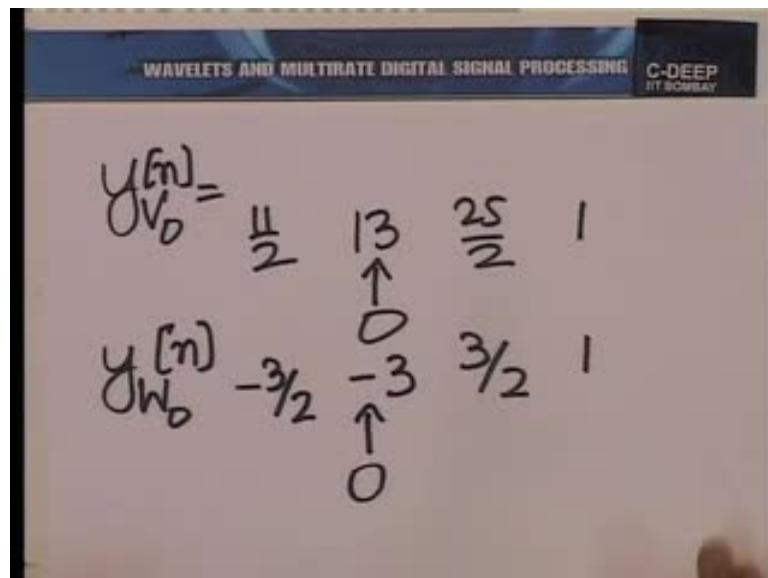 WAVELETS AND MULTIRATE DIGITAL SIGNAL PROCESSING
C-DEEP
IIT BOMBAY
y_{V_0}[n] = 11/2 13 25/2 1
↑
0
y_{W_0}[n] -3/2 -3 3/2 1
↑
0